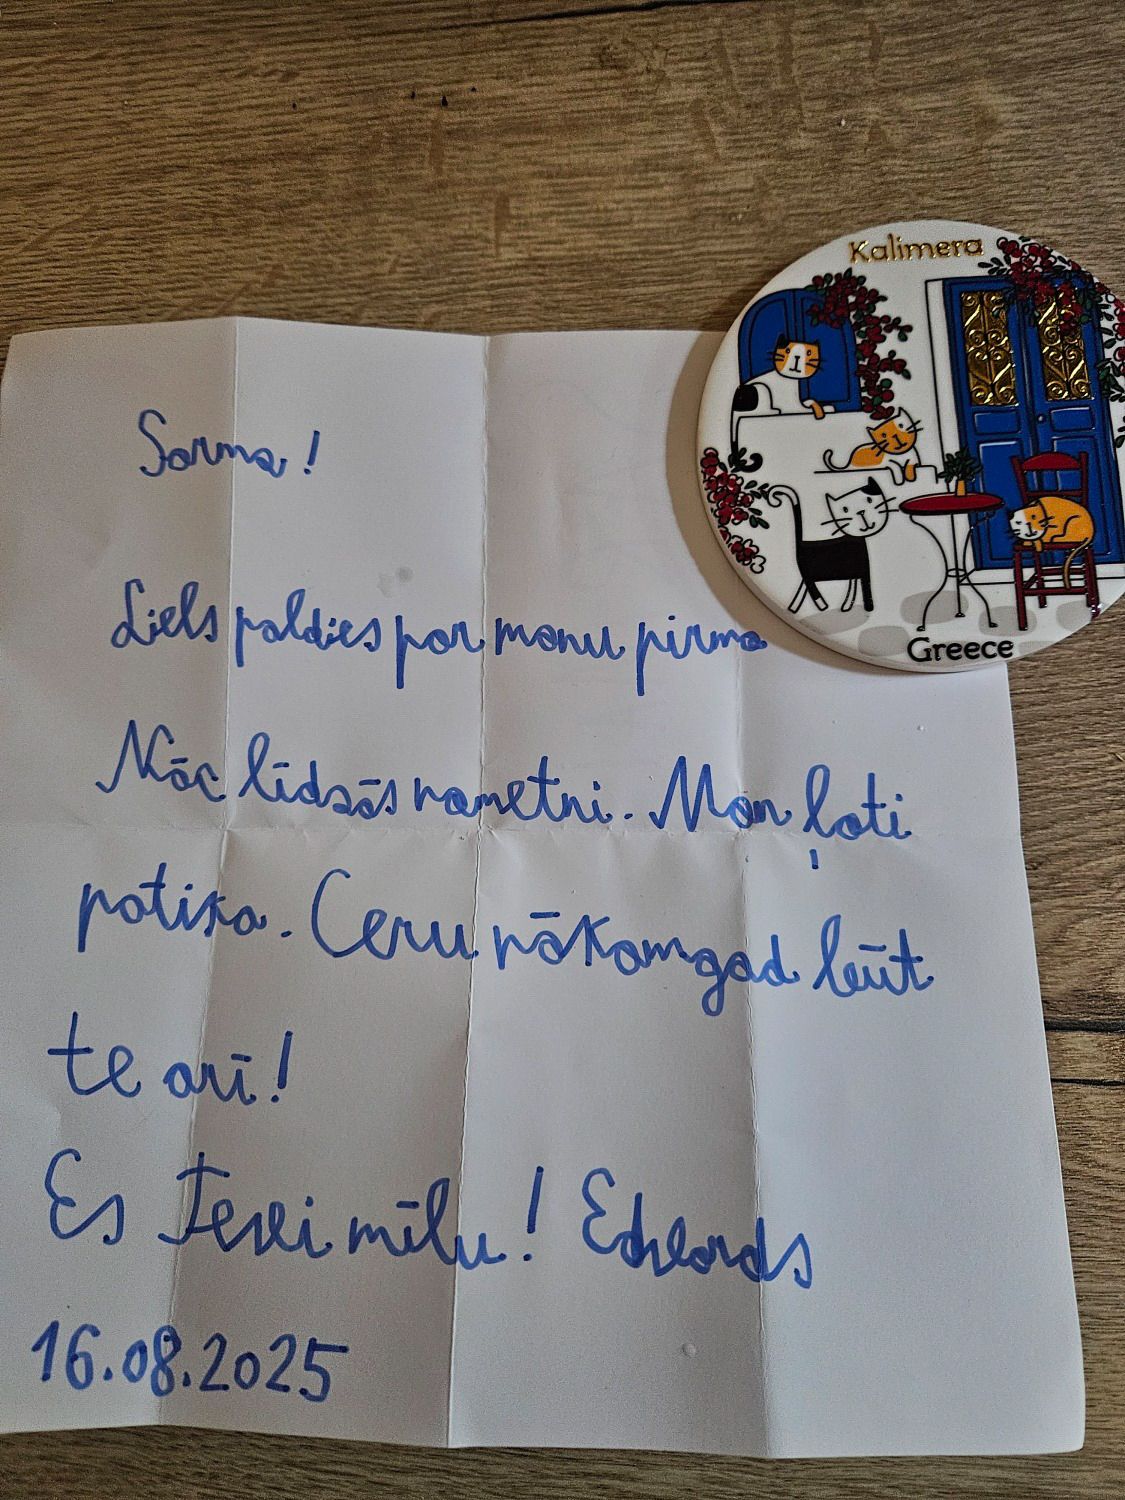 Kalimera
Greece
Sarma!
Liels paldies par manu pirmo
Nāc līdzās nometni. Man ļoti
patika. Ceru nākamgad būt
te arī!
Es Tevi mīlu! Edvards
16.08.2025